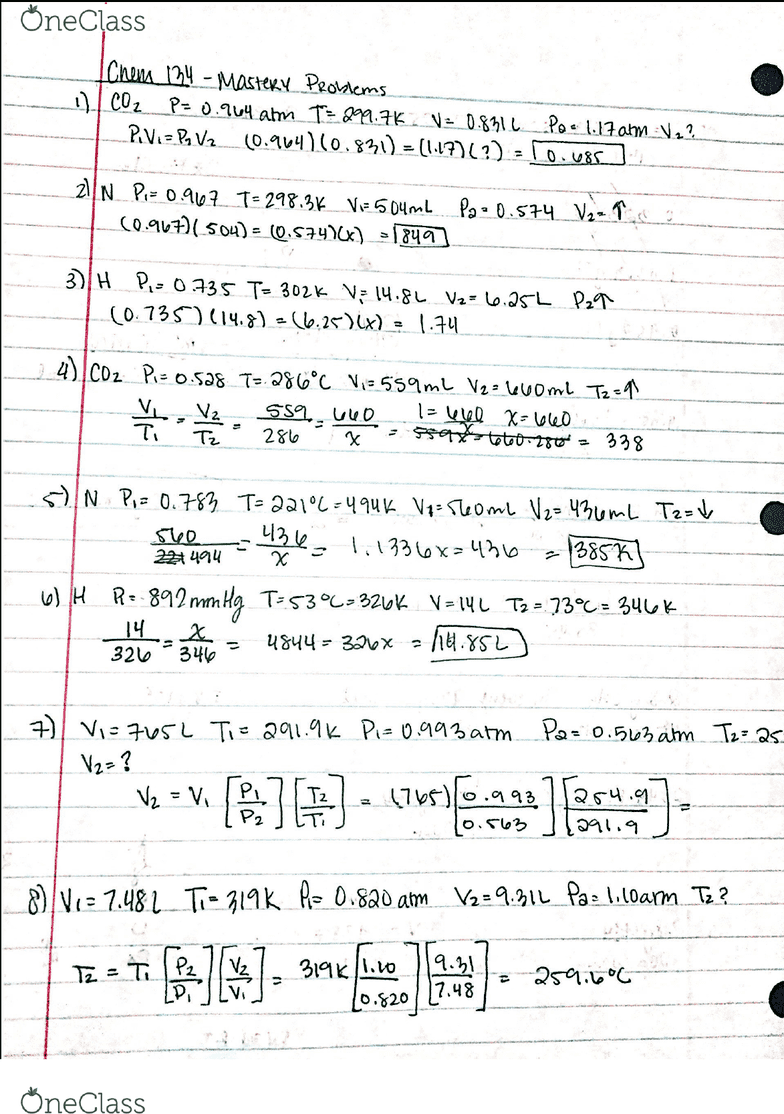 OneClass
Chem 134 - Mastery Problems
1) CO2 P= 0.964 atm T= 299.7K V= 0.831 L P2= 1.17atm V2?
P1V1=P2V2 (0.964)(0.831) = (1.17)(?) = 0.685
2) N P1= 0.967 T= 298.3K V1= 504mL P2= 0.574 V2= ↑
(0.967)(504) = (0.574)(x) = 849
3) H P1= 0.735 T= 302K V1= 14.8L V2= 6.25L P2↑
(0.735)(14.8) = (6.25)(x) = 1.74
4) CO2 P1= 0.528 T= 286°C V1= 559mL V2= 660ml T2=↑
V1/T1 = V2/T2 = 559/286 = 660/x = 1= 660/x x= 660
559x = 660·286 = 338
5) N P1= 0.783 T= 221°C = 494K V1= 560ml V2= 436mL T2=↓
560/221 494 = 436/x = 1.1336x = 436 = 385K
6) H P= 892 mmHg T= 53°C = 326K V= 14L T2= 73°C = 346K
14/326 = x/346 = 4844 = 326x = 14.85L
7) V1= 765L T1= 291.9K P1= 0.993atm P2= 0.563atm T2= 25
V2= ?
V2 = V1 [P1/P2] [T2/T1] = (765) [0.993/0.563] [254.9/291.9] =
8) V1= 7.48L T1= 319K P1= 0.820 atm V2= 9.31L P2= 1.10arm T2?
T2 = T1 [P2/P1] [V2/V1] = 319K [1.10/0.820] [9.31/7.48] = 259.6°C
OneClass